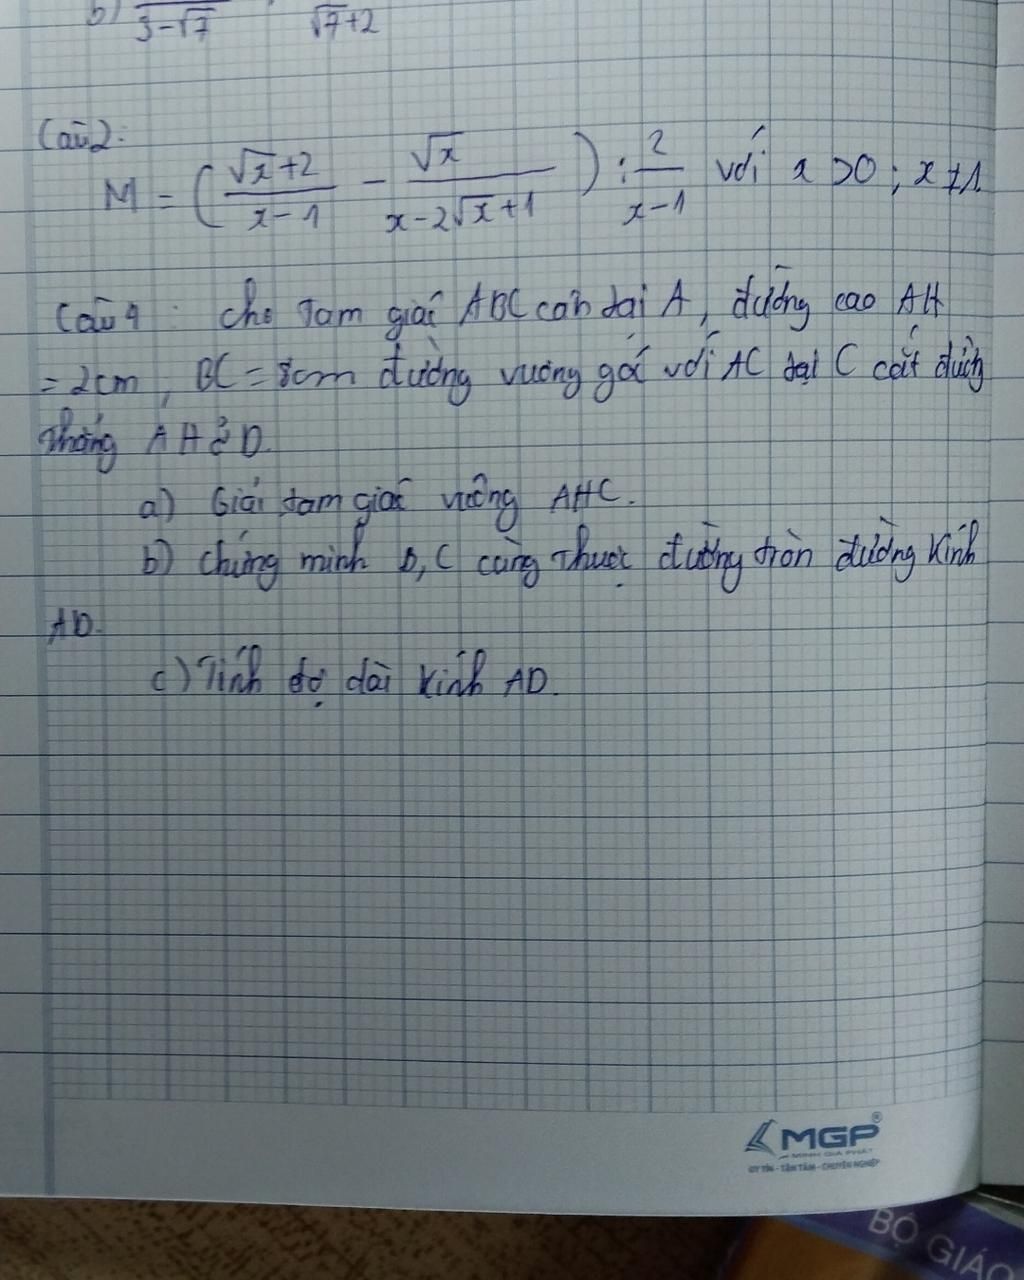 b) 3-√7 √7+2
Câu2:
M = ( (√x+2)/(x-1) - √x/(x-2√x+1) ) : 2/(x-1) với x >0 ; x ≠1.
Câu 4 : Cho Tam giác ABC cân tại A, đường cao AH
= 2cm, BC = 8cm đường vuông góc với AC tại C cắt đường
Thẳng AH ở D.
a) Giải tam giác vuông AHC.
b) Chứng minh B,C cùng Thuộc đường tròn đường kính
AD.
c) Tính độ dài kính AD.
MGP®
MINH GIA PHÁT
UY TÍN - TẬN TÂM - CHUYÊN NGHIỆP
BỘ GIÁO